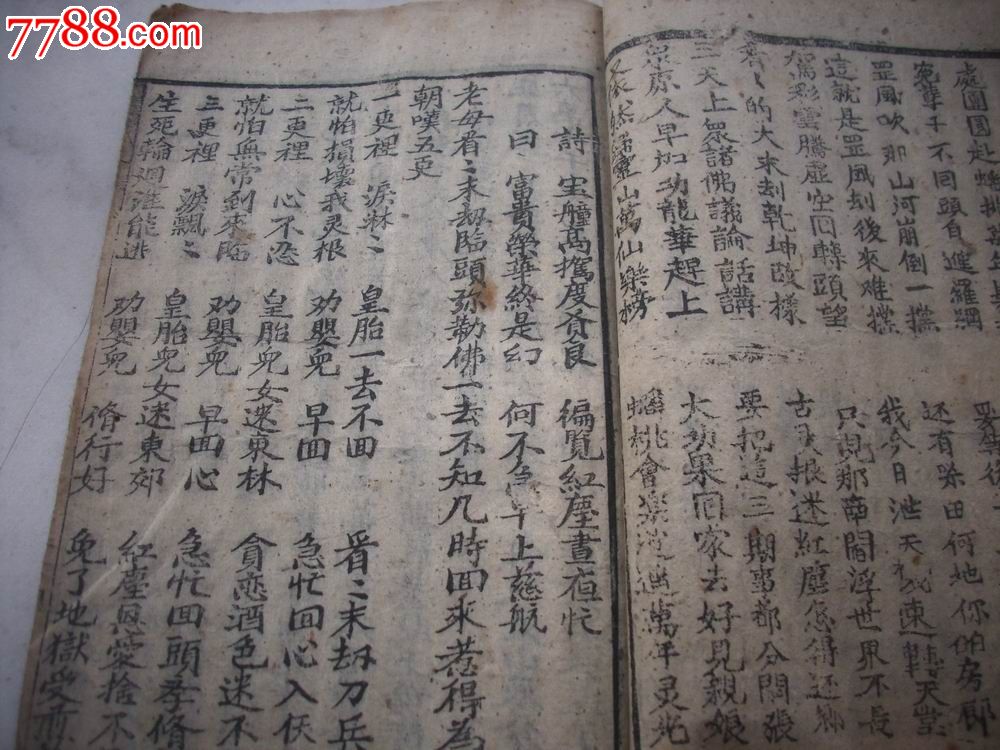 7788.com
處圓圓赴蟠桃
冤孽子不回頭自進羅網 還有莊田何地你的房廊
罡風吹那山河崩倒一攃 我今日泄天机速轉天堂
這就是罡風刼後來难攃 只見那南閻浮世界不長
駕彩雲騰虛空回轉頭望 古灵根迷紅塵怎得还鄉
齊齊的大末刼乾坤改樣 要把這三期事都分開張
三天上眾諸佛議論話講 大功果回家去好見親娘
眾原人早加功龍華趕上 蟠桃會樂逍遥萬年灵光
靈山萬仙樂榜
詩 宝艟高攬度貧良 徧覧紅塵晝夜忙
曰 富貴榮華終是幻 何不急早上慈航
老母看〻末刼臨頭弥勒佛一去不知几時回來惹得為
朝嘆五更
一更裡 淚淋〻 皇胎一去不回 看〻末刼刀兵
就怕損壞我灵根 劝嬰兒 早回 急忙回心入
二更裡 心不忍 皇胎兒女迷東林 貪恋酒色迷不
就怕無常到來臨 劝嬰兒 早回心 急忙回頭孝脩
三更裡 淚飄〻 皇胎兒女迷東郊 紅塵恩愛捨不
生死輪迴誰能逃 劝嬰兒 脩行好 免了地獄受